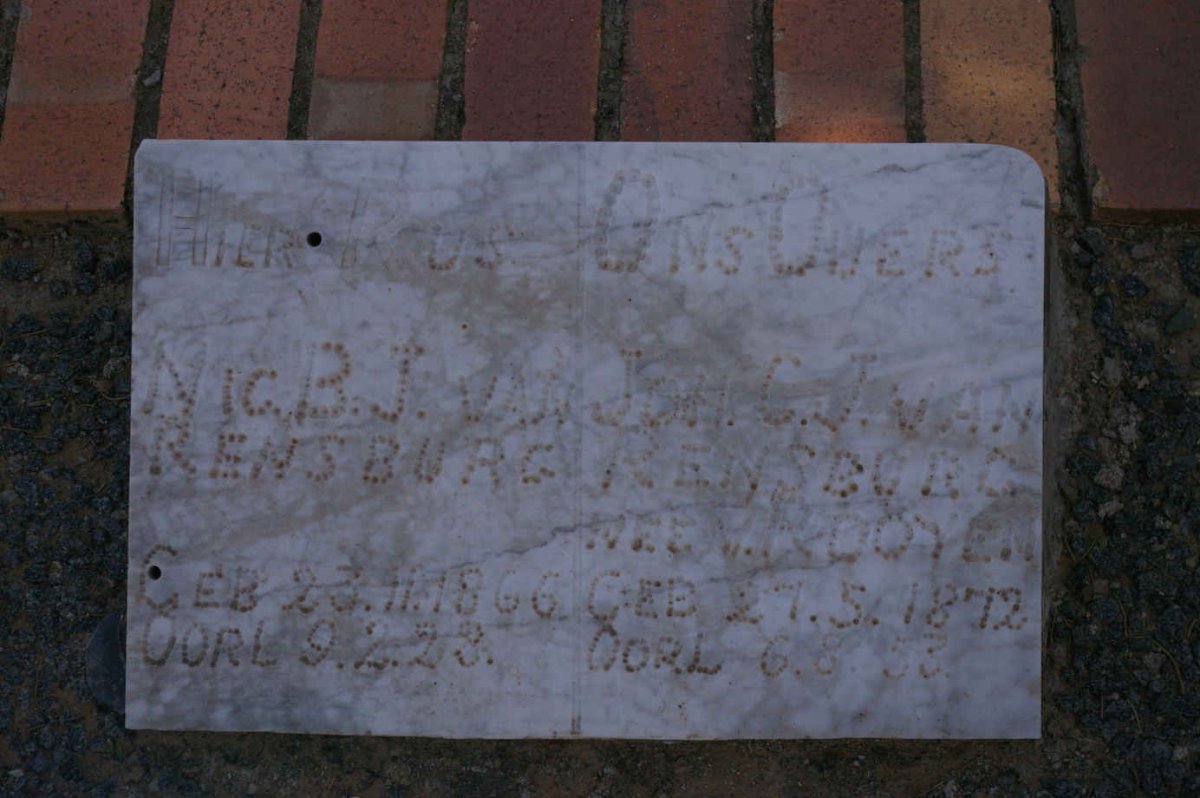 HIER RUS ONS OUERS
NIC.B.J. VAN
RENSBURG
GEB 23.11.1866
OORL 9.2.23.
JOH. C.J. VAN
RENSBURG
NEE V. ROOYEN
GEB 27.5.1872
OORL 6.8 53.